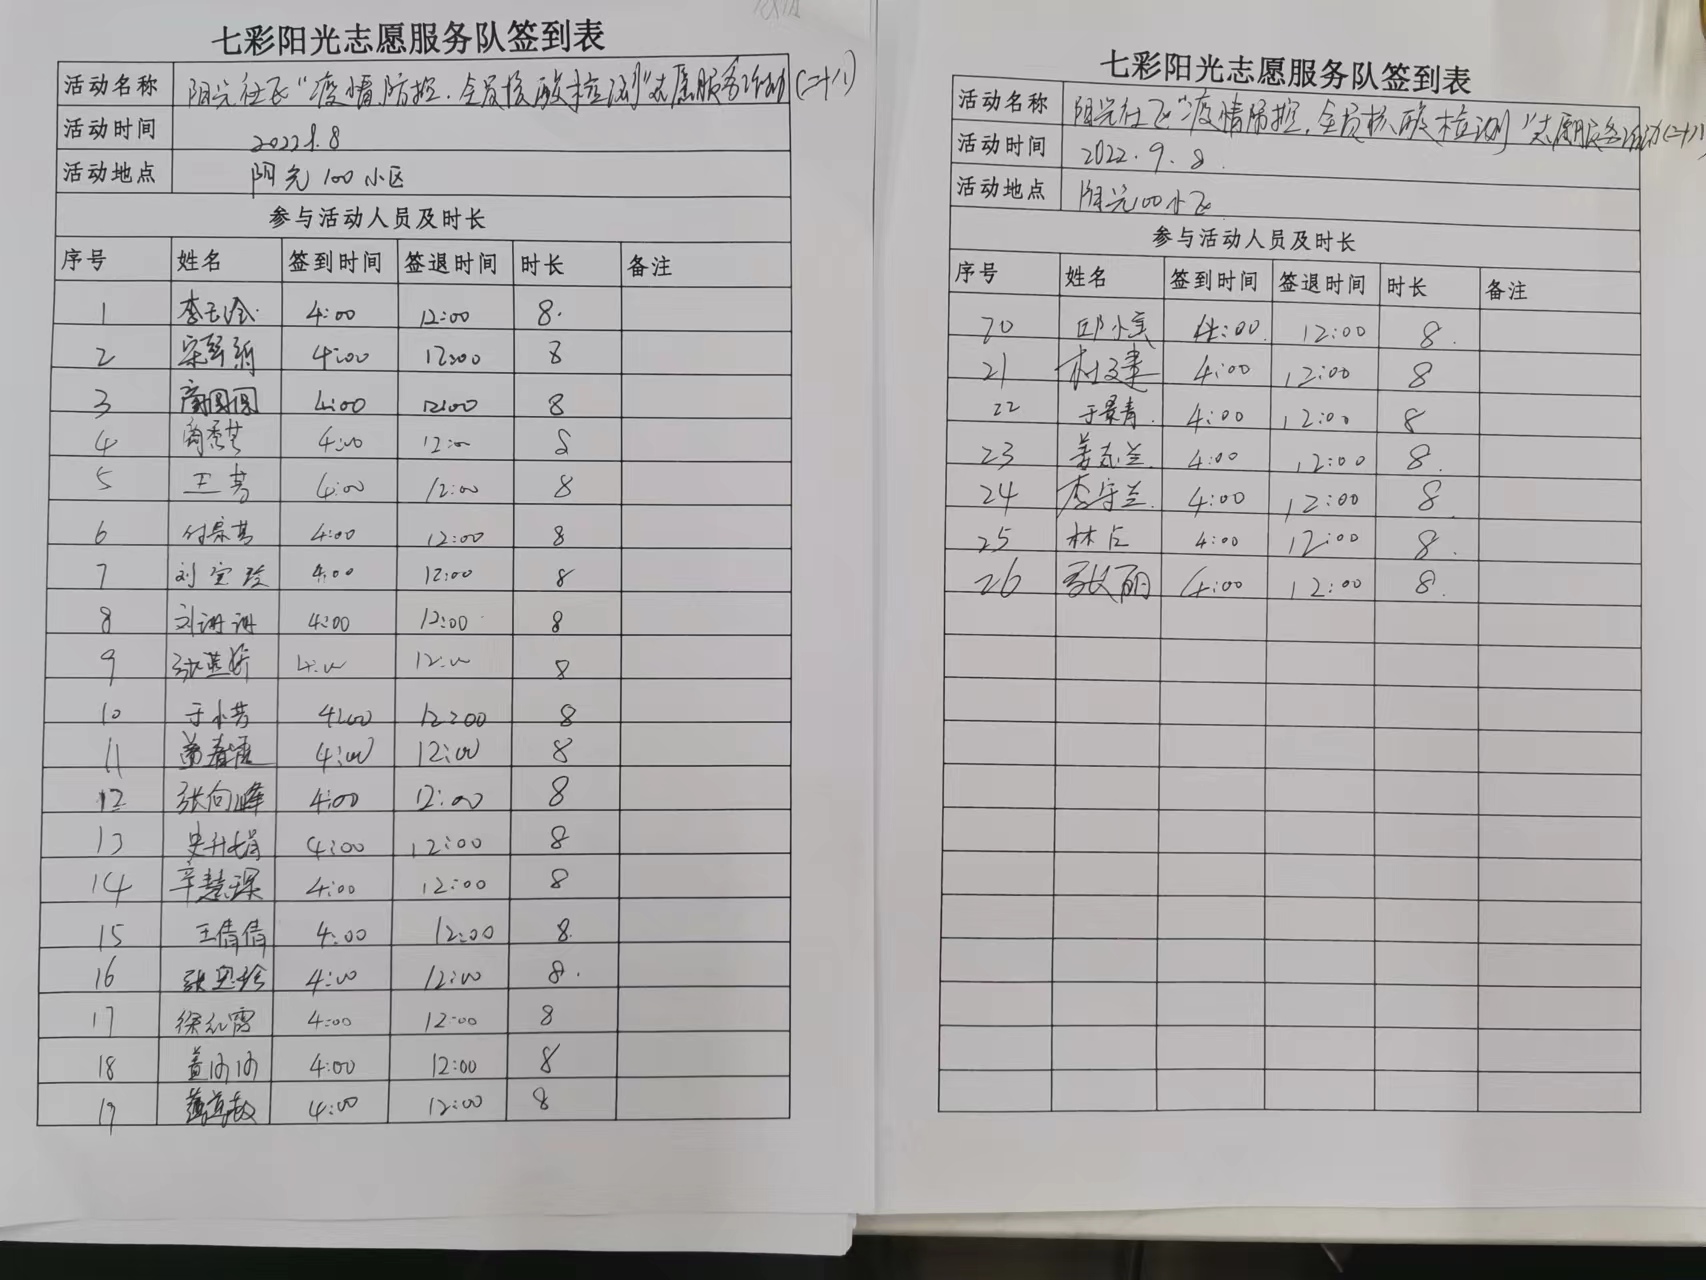 七彩阳光志愿服务队签到表
活动名称 阳光社区"疫情防控.全员核酸检测"志愿服务活动(二十八)
活动时间 2022.9.8
活动地点 阳光100小区
参与活动人员及时长
序号 姓名 签到时间 签退时间 时长 备注
1 4:00 12:00 8.
2 4:00 12:00 8
3 4:00 12:00 8
4 4:00 12:00 8
5 王芳 4:00 12:00 8
6 付荣芳 4:00 12:00 8
7 刘宝珍 4:00 12:00 8
8 刘讲讲 4:00 12:00 8
9 4:00 12:00 8
10 于小芳 4:00 12:00 8
11 4:00 12:00 8
12 张向峰 4:00 12:00 8
13 史升娟 4:00 12:00 8
14 辛慧琛 4:00 12:00 8
15 王倩倩 4:00 12:00 8.
16 4:00 12:00 8.
17 徐礼霞 4:00 12:00 8
18 4:00 12:00 8
19 4:00 12:00 8
七彩阳光志愿服务队签到表
活动名称 阳光社区"疫情防控.全员核酸检测"志愿服务活动(二十八)
活动时间 2022.9.8.
活动地点 阳光100小区
参与活动人员及时长
序号 姓名 签到时间 签退时间 时长 备注
20 邱小美 4:00 12:00 8.
21 杜文建 4:00 12:00 8
22 于景青. 4:00 12:00 8
23 姜志兰. 4:00 12:00 8.
24 李守兰. 4:00 12:00 8.
25 4:00 12:00 8.
26 张丽 4:00 12:00 8.